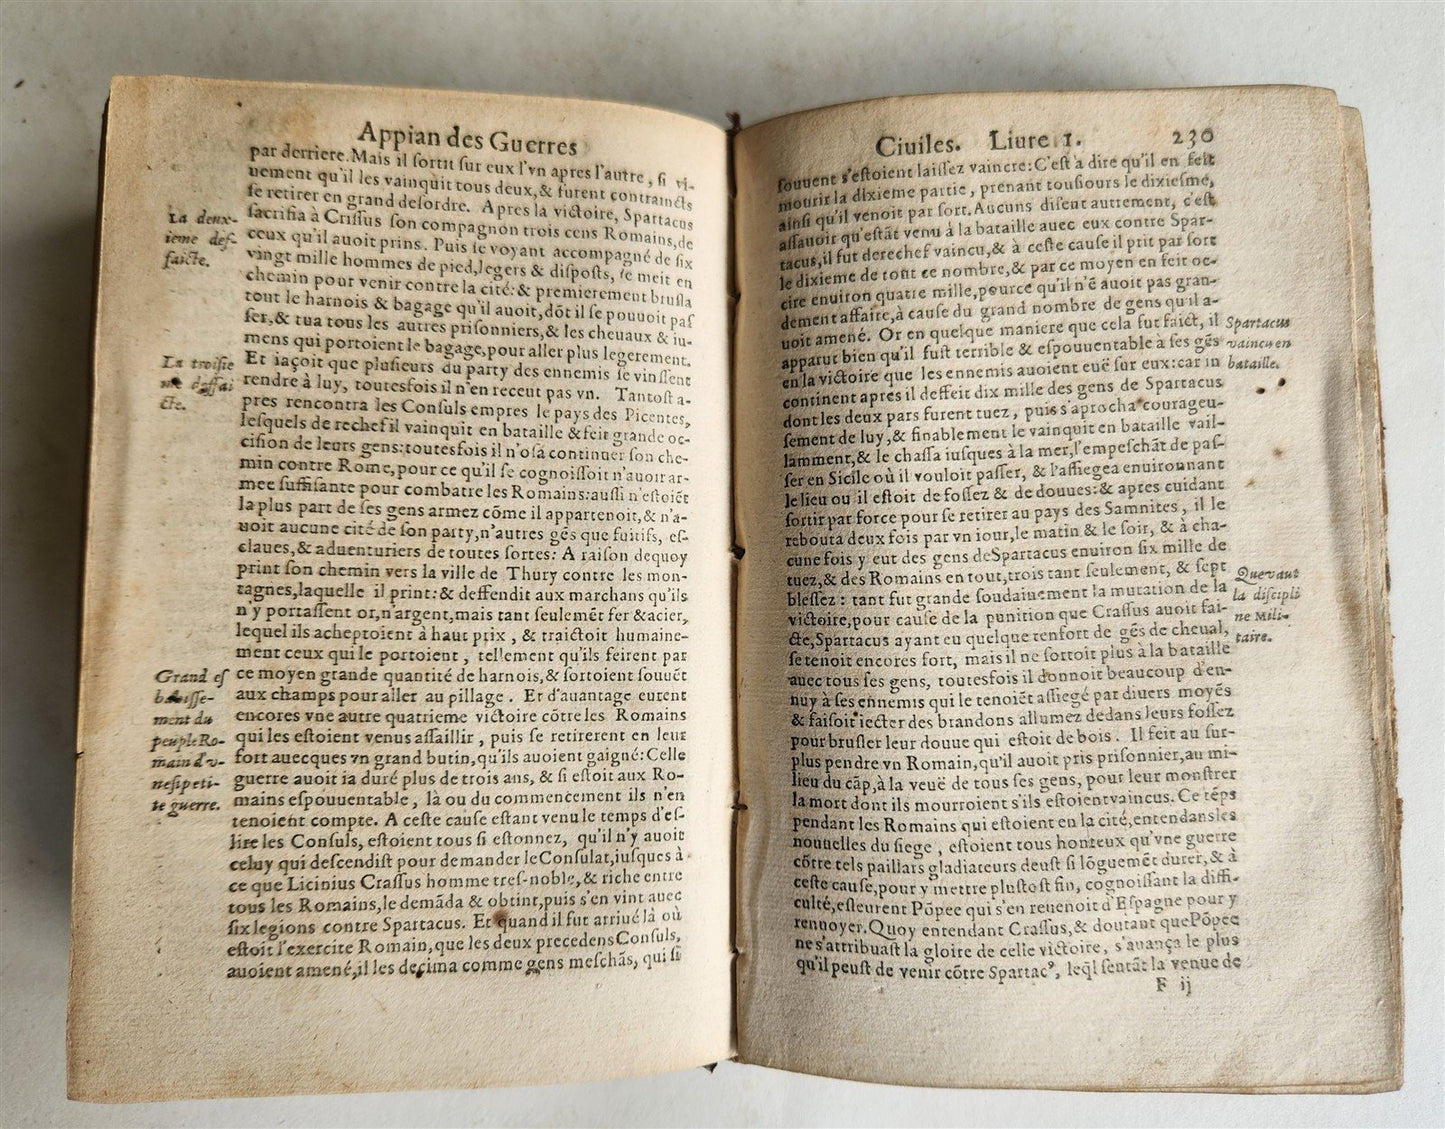 Appian des Guerres
par derriere. Mais il sortit sur eux l'vn apres l'autre, si vi-
uement qu'il les vainquit tous deux, & furent contraincts
se retirer en grand desordre. Apres la victoire, Spartacus
sacrifia à Crissus son compagnon trois cens Romains, de
ceux qu'il auoit prins. Puis se voyant accompagné de six
vingt mille hommes de pied, legers & disposts, se meit en
chemin pour venir contre la cité: & premierement brusla
tout le harnois & bagage qu'il auoit, dōt il se pouuoit pas
ser, & tua tous les autres prisonniers, & les cheuaux & iu-
mens qui portoient le bagage, pour aller plus legerement.
Et iaçoit que plusieurs du party des ennemis se vinssent
rendre à luy, toutesfois il n'en recent pas vn. Tantost a-
pres rencontra les Consuls empres le pays des Picentes,
lesquels de rechef il vainquit en bataille & feit grande oc-
cision de leurs gens: toutesfois il n'osa continuer son che-
min contre Rome, pour ce qu'il se cognoissoit n'auoir ar-
mee suffisante pour combatre les Romains: aussi n'estoiēt
la plus part de ses gens armez cōme il appartenoit, & n'a-
uoit aucune cité de son party, n'autres gēs que fuitifs, es-
claues, & aduenturiers de toutes sortes: A raison dequoy
print son chemin vers la ville de Thury contre les mon-
tagnes, laquelle il print: & deffendit aux marchans qu'ils
n'y portassent or, n'argent, mais tant seulemēt fer & acier,
lequel ils acheptoient à haut prix, & traictoit humaine-
ment ceux qui le portoient, tellement qu'ils feirent par
ce moyen grande quantité de harnois, & sortoient souuēt
aux champs pour aller au pillage. Et d'auantage eurent
encores vne autre quatrieme victoire cōtre les Romains
qui les estoient venus assaillir, puis se retirerent en leur
fort auecques vn grand butin, qu'ils auoient gaigné: Celle
guerre auoit ia duré plus de trois ans, & si estoit aux Ro-
mains espouuentable, là ou du commencement ils n'en
tenoient compte. A ceste cause estant venu le temps d'es-
lire les Consuls, estoient tous si estonnez, qu'il n'y auoit
celuy qui descendist pour demander le Consulat, iusques à
ce que Licinius Crassus homme tres-noble, & riche entre
tous les Romains, le demāda & obtint, puis s'en vint auec
six legions contre Spartacus. Et quand il fut arriué là où
estoit l'exercite Romain, que les deux precedens Consuls,
auoient amené, il les decima comme gens meschās, qui si
La deux-
ieme def-
faicte.
La troisie
me d'effai
cte.
Grand es
bahisse-
ment du
peuple Ro-
main d'v-
ne si peti-
te guerre.
Ciuiles. Liure 1. 230
souuent s'estoient laissez vaincre: C'est a dire qu'il en feit
mourir la dixieme partie, prenant tousiours le dixiesme,
ainsi qu'il venoit par sort. Aucuns disent autrement, c'est
assauoir qu'estāt venu à la bataille auec eux contre Spar-
tacus, il fut derechef vaincu, & à ceste cause il prit par sort
le dixieme de tout ce nombre, & par ce moyen en feit oc-
cire enuiron quatre mille, pource qu'il n'ē auoit pas gran-
dement affaire, à cause du grand nombre de gens qu'il a-
uoit amené. Or en quelque maniere que cela fut faict, il
apparut bien qu'il fust terrible & espouuentable a ses gēs
en la victoire que les ennemis auoient euë sur eux: car in
continent apres il deffeit dix mille des gens de Spartacus
dont les deux pars furent tuez, puis s'aprocha courageu-
sement de luy, & finablement le vainquit en bataille vail-
lamment, & le chassa iusques à la mer, l'empeschāt de pas-
ser en Sicile où il vouloit passer, & l'assiegea enuironnant
le lieu ou il estoit de fossez & de douues: & apres cuidant
sortir par force pour se retirer au pays des Samnites, il le
rebouta deux fois par vn iour, le matin & le soir, & à cha-
cune fois y eut des gens de Spartacus enuiron six mille de
tuez, & des Romains en tout, trois tant seulement, & sept
blessez: tant fut grande soudainement la mutation de la
victoire, pour cause de la punition que Crassus auoit fai-
cte, Spartacus ayant eu quelque renfort de gēs de cheual,
se tenoit encores fort, mais il ne sortoit plus à la bataille
auec tous ses gens, toutesfois il donnoit beaucoup d'en-
nuy à ses ennemis qui le tenoiēt assiegé par diuers moyēs
& faisoit iecter des brandons allumez dedans leurs fossez
pour brusler leur douue qui estoit de bois. Il feit au sur-
plus pendre vn Romain, qu'il auoit pris prisonnier, au mi-
lieu du cāp, à la veuë de tous ses gens, pour leur monstrer
la mort dont ils mourroient s'ils estoient vaincus. Ce tēps
pendant les Romains qui estoient en la cité, entendans les
nouuelles du siege, estoient tous honteux qu'vne guerre
cōtre tels paillars gladiateurs deust si lōguemēt durer, & à
ceste cause, pour y mettre plustost fin, cognoissant la diffi-
culté, esleurent Pōpee qui s'en reuenoit d'Espagne pour y
renuoyer. Quoy entendant Crassus, & doutant que Pōpee
ne s'attribuast la gloire de celle victoire, s'auança le plus
qu'il peust de venir cōtre Spartac⁹, leq̄l sentāt la venue de
F ij
Spartacus
vaincu en
bataille.
Que vaut
la discipli
ne Mili-
taire.